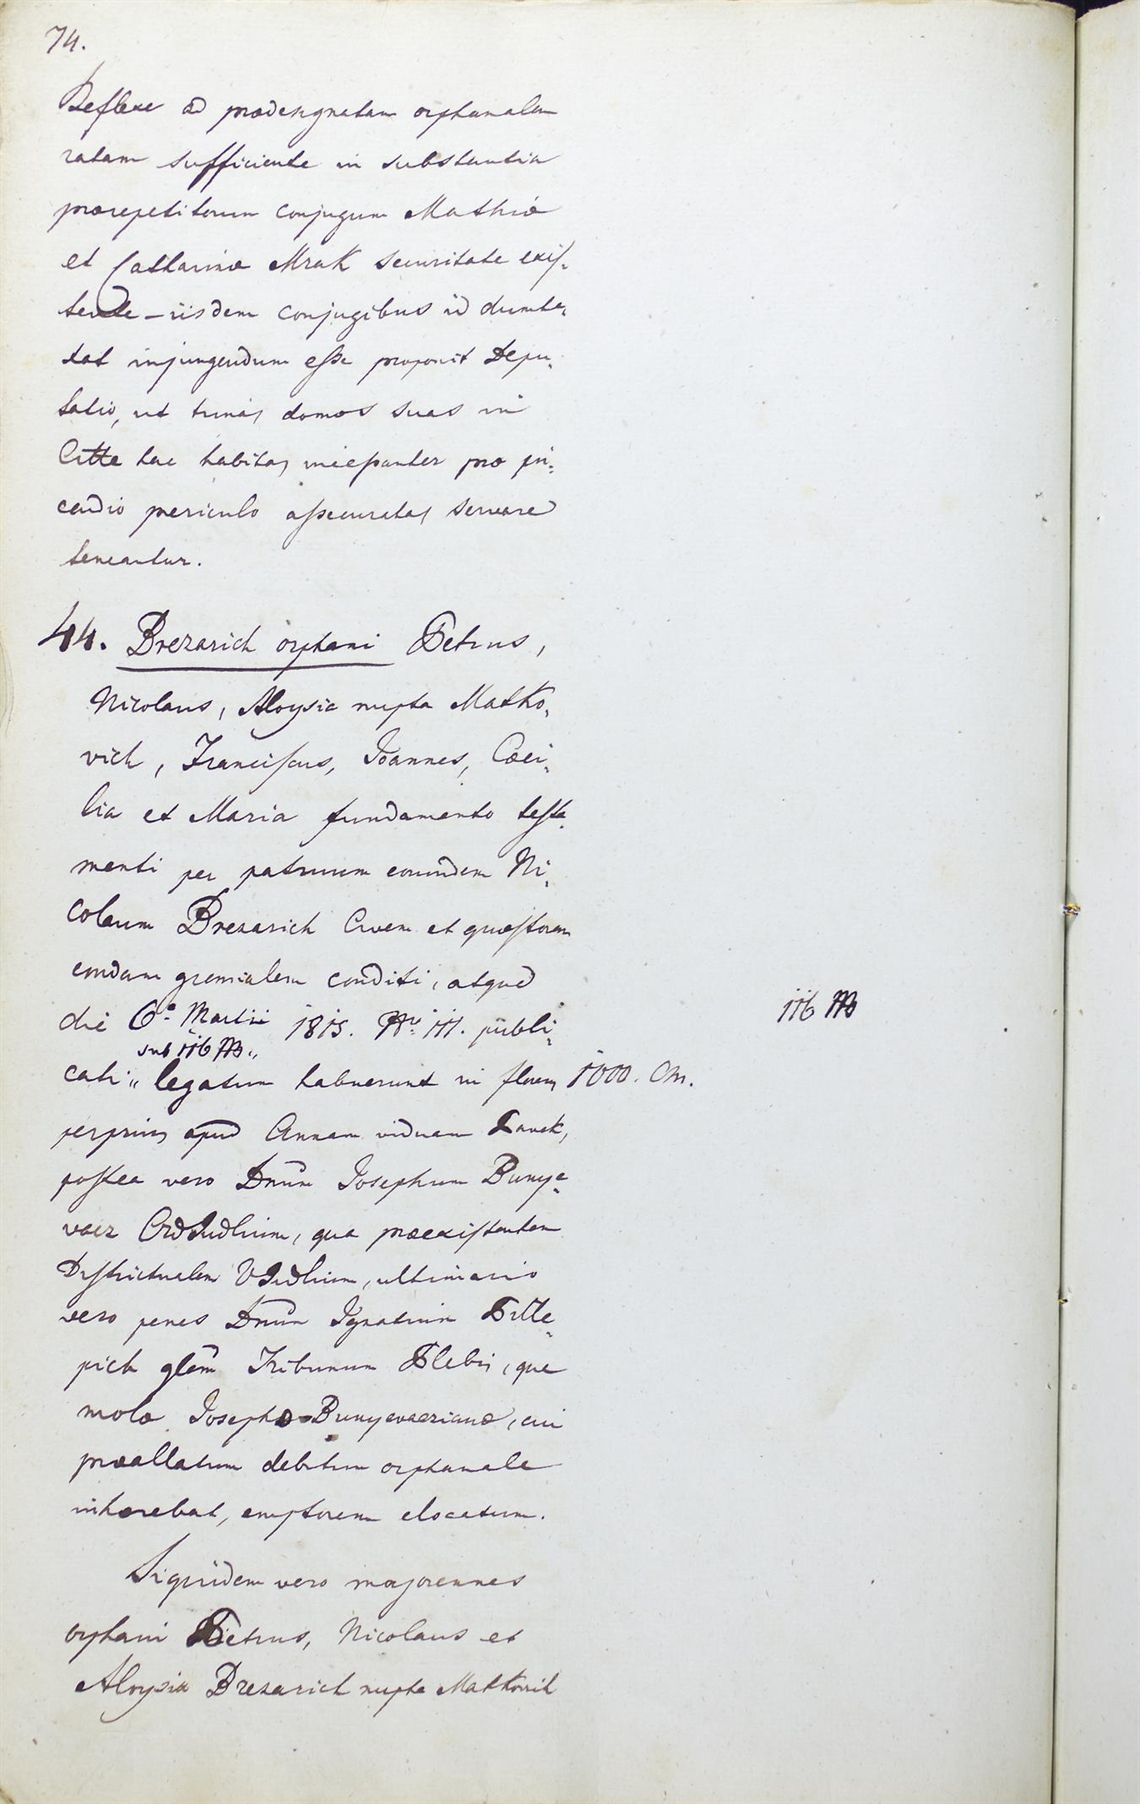 74.
Reflexe ad praedesignatam orphanalem
ratam sufficiente in substantia
praerepetitorum conjugum Mathiae
et Catharinae Mrak securitate exis-
tente – iisdem conjugibus id dumta-
xat injungendum esse proponit Depu-
tatio, ut binas domos suas in
Citte hac habitas incessanter prae in-
cendio periculo assecuratas servare
teneantur.
44. Brezarich orphani Petrus,
Nicolaus, Aloysia nupta Matko-
vich, Franciscus, Joannes, Caeci-
lia et Maria fundamento testa-
menti per patruum eorundem Ni-
colaum Brezarich Civem et quaestorem
condam gremialem conditi, atque
die 6a Martii 1815. No 111. publi-
sub 116 M
116 M
cati legatum habuerunt in florenis 1000. Cm.
perprius apud Annam viduam
postea vero Dnum Josephum Bunye-
vacz OrdJudlium, qua praeexistentem
Districtualem VJudlium, ultimario
vero penes Dnum Ignatium Pitte-
pich glem Tribunum Plebis, qua
molae Josepho Bunyevaczianae, cui
praeallatum debitum orphanale
inhaerebat, emptorem elocatum.
Siquidem vero majorennes
orphani Petrus, Nicolaus et
Aloysia Brezarich nupta Matkovich